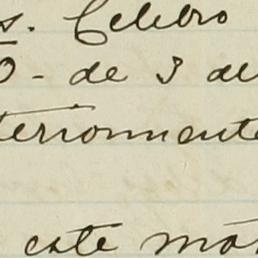 s. Celebro
0 - de 3 de
teriormente
este má